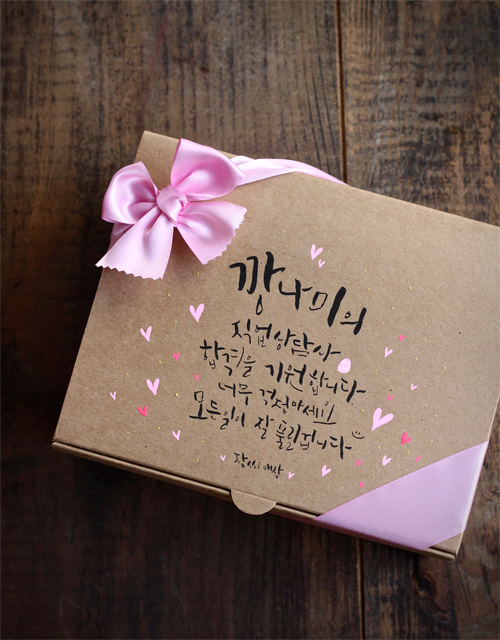 깡나미의
직업상담사
합격을 기원합니다
너무 걱정마세요
모든일이 잘 풀릴겁니다